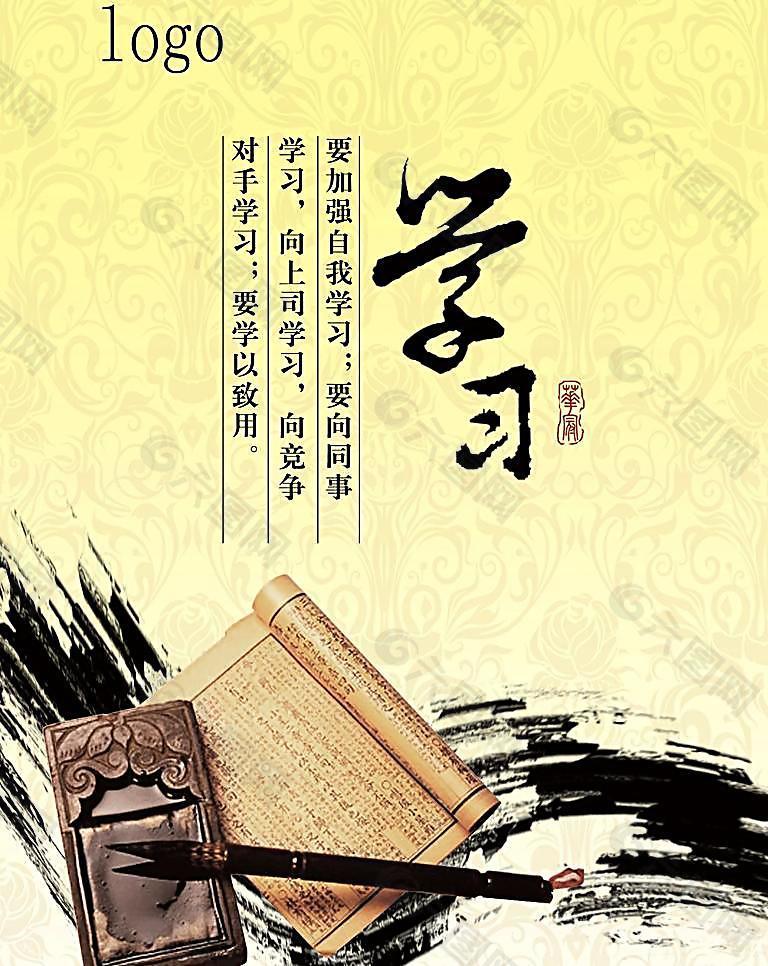 logo
学习
要加强自我学习；要向同事
学习，向上司学习，向竞争
对手学习；要学以致用。
六图网